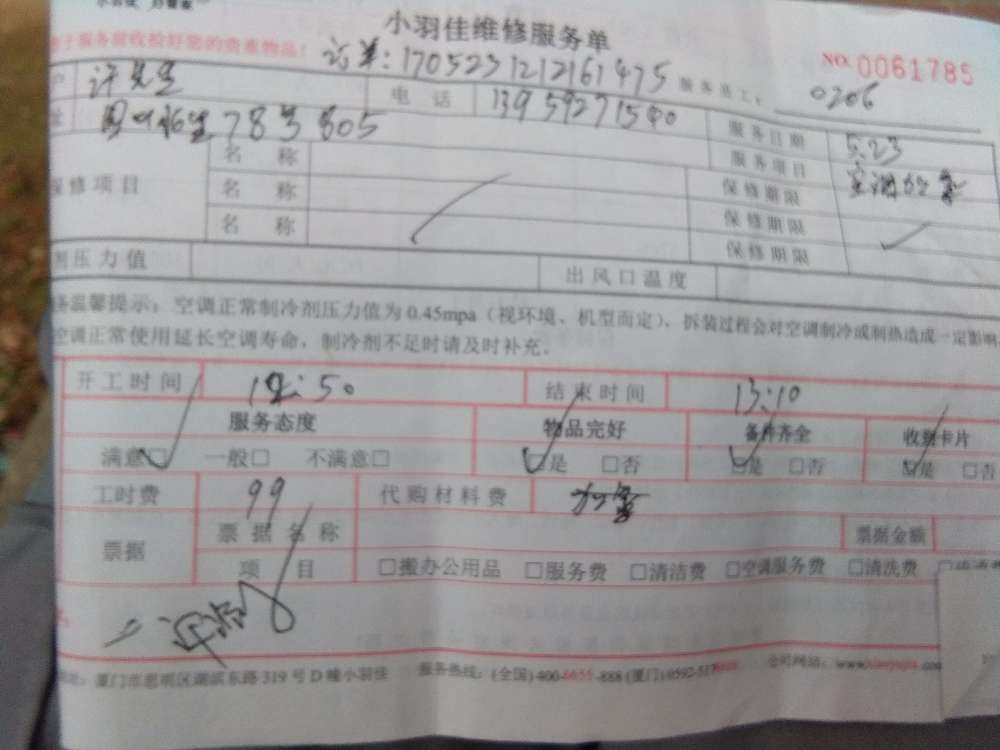 小羽佳维修服务单
于服务前收捡好您的贵重物品！
NO.0061785
订单：1705231212161475 服务员工： 0206
许先生 电 话 13959271500
78号805 服务日期 5.23
保修项目 名 称 服务项目 空调加氟
名 称 保修期限
名 称 保修期限
保修期限
剂压力值 出风口温度
温馨提示：空调正常制冷剂压力值为0.45mpa（视环境、机型而定），拆装过程会对空调制冷或制热造成一定影响
空调正常使用延长空调寿命，制冷剂不足时请及时补充。
开工时间 12:50 结束时间 13:10
服务态度 物品完好 备件齐全 收到卡片
满意□ 一般□ 不满意□ □是 □否 □是 □否 □是 □否
工时费 99 代购材料费 加氟
票据 票据名称 票据金额
项 目 □搬办公用品 □服务费 □清洁费 □空调服务费 □清洗费
地址：厦门市思明区湖滨东路319号D幢小羽佳 服务热线：(全国) 400-6655-888 (厦门) 0592-517 公司网站：www.xiaoyujia.com